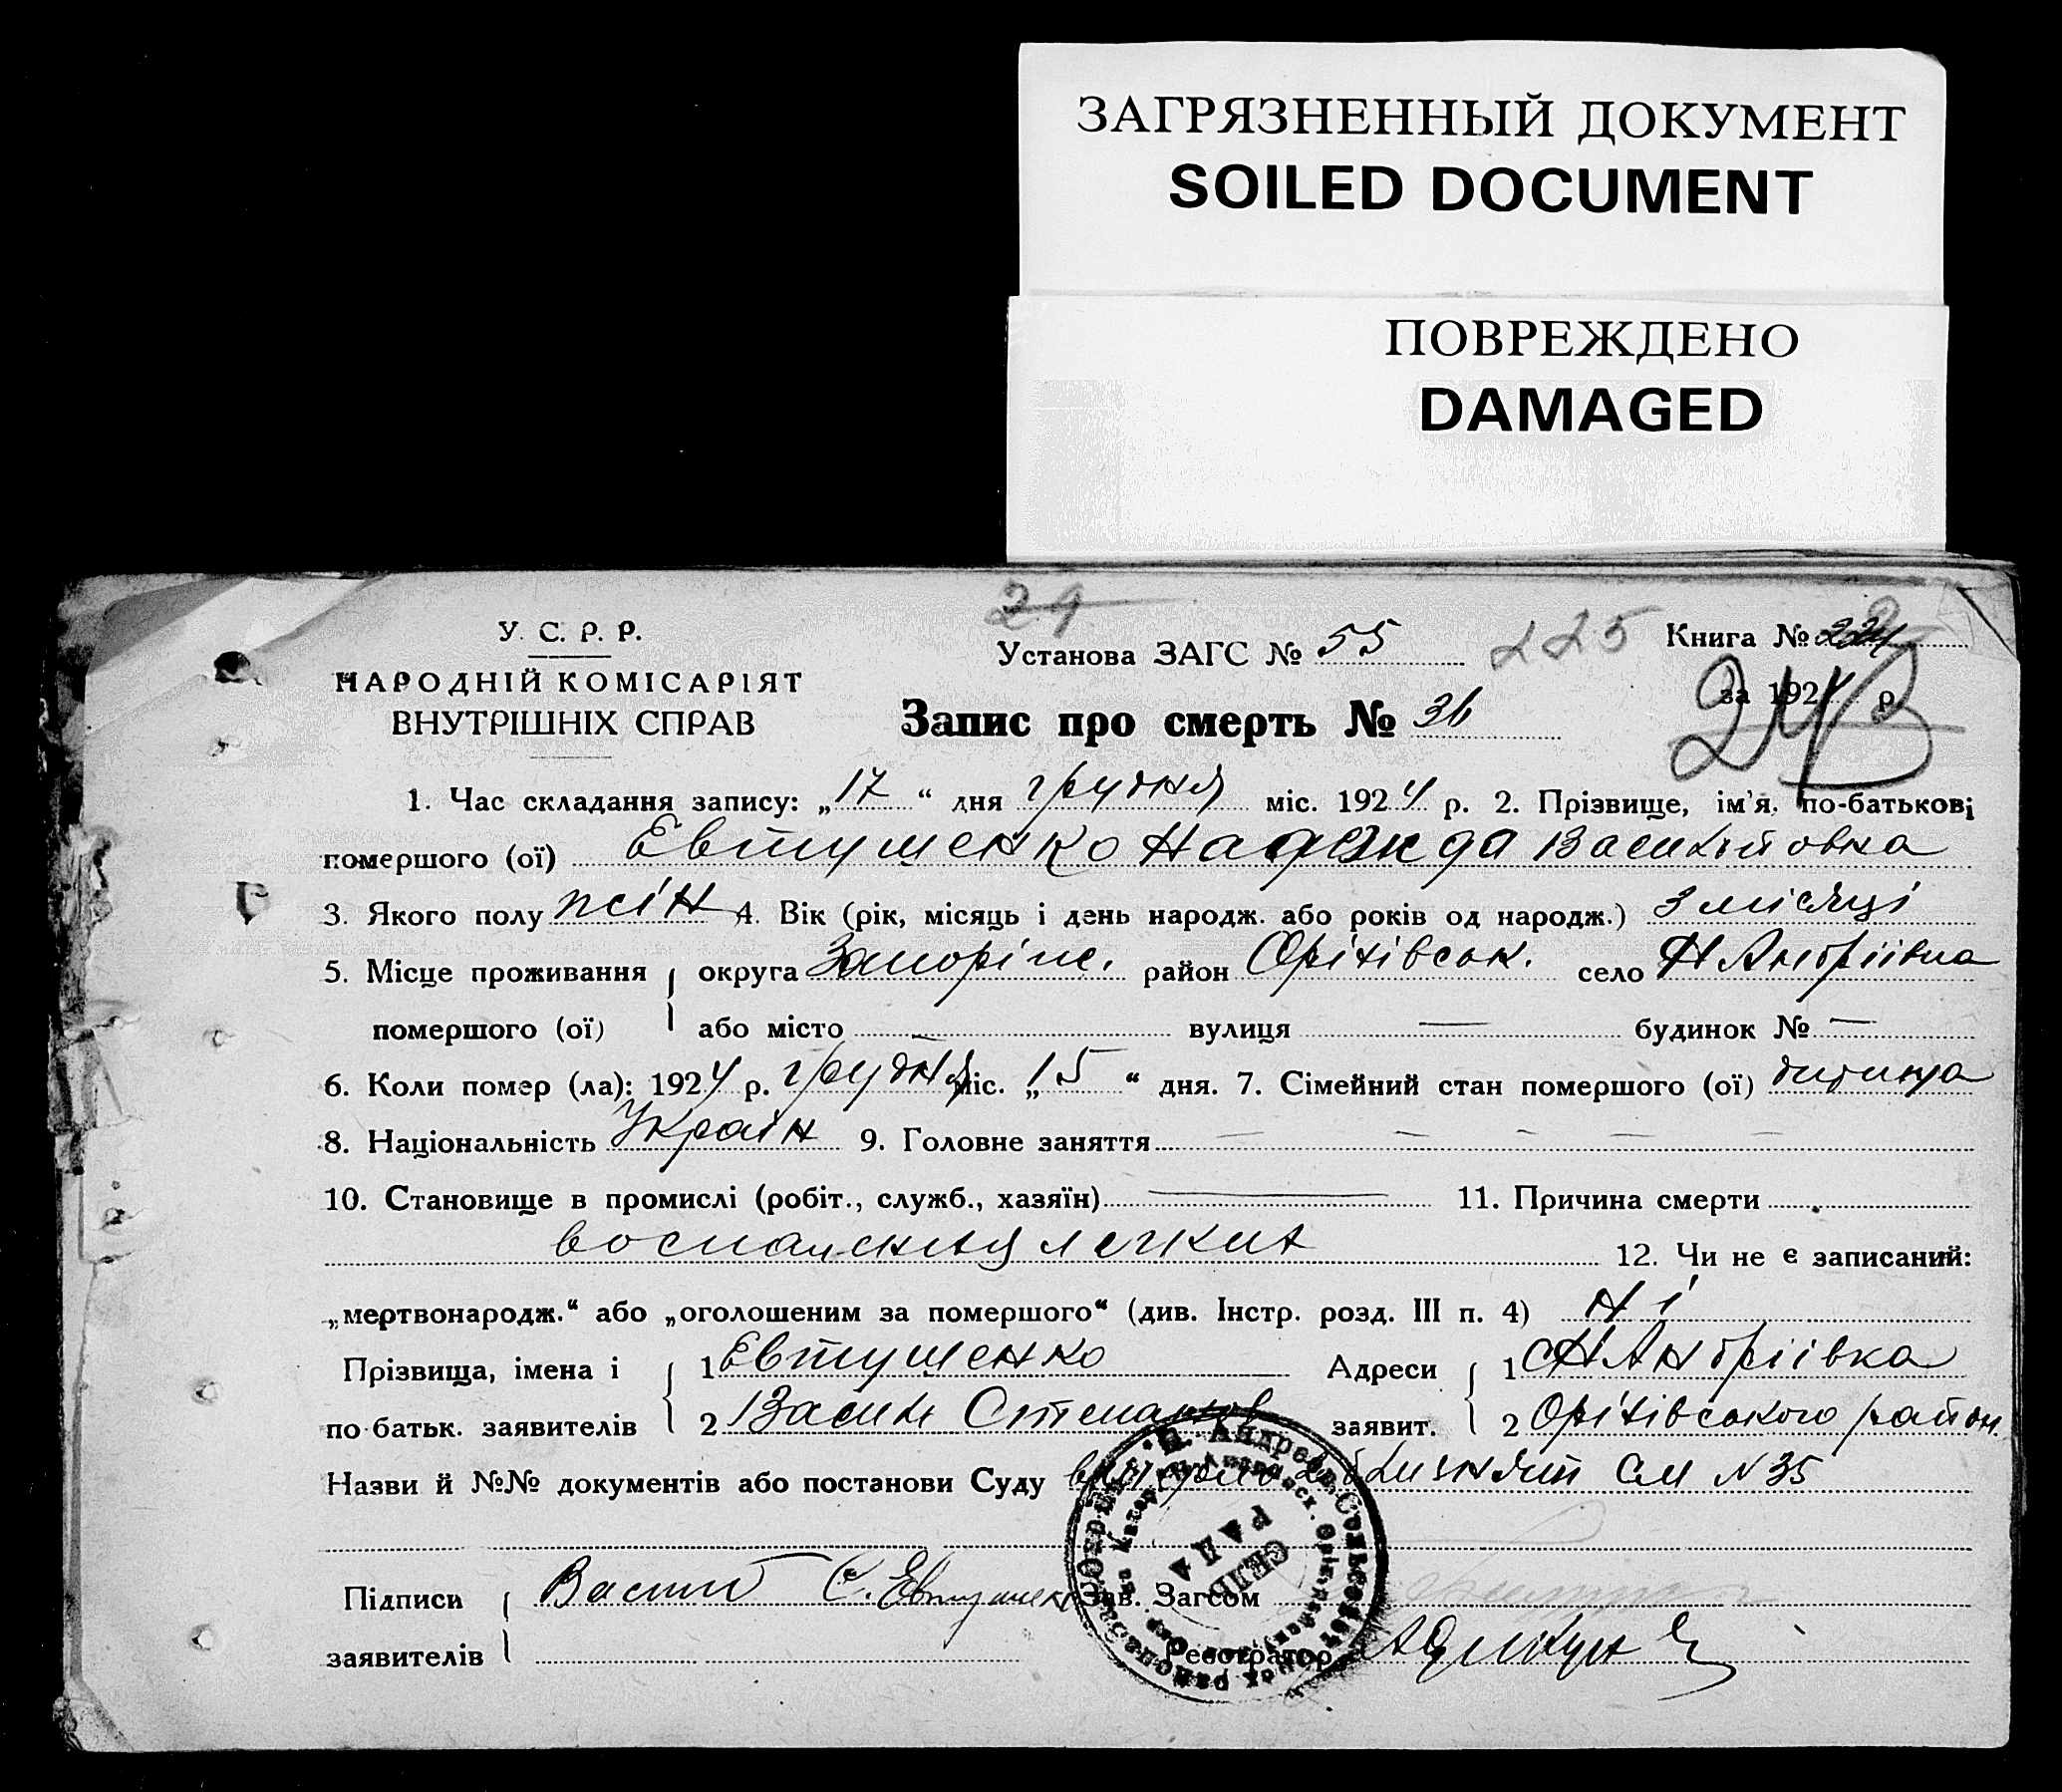 ЗАГРЯЗНЕННЫЙ ДОКУМЕНТ
SOILED DOCUMENT
ПОВРЕЖДЕНО
DAMAGED
У. С. Р. Р.
НАРОДНІЙ КОМІСАРІЯТ
ВНУТРІШНІХ СПРАВ
29
Установа ЗАГС № 55 225 Книга №
за 1924 р.
Запис про смерть № 36
1. Час складання запису: „17“ дня грудня міс. 1924 р. 2. Прізвище, ім'я, по-батькові
помершого (ої) Евтушенко Надежда Васильовна
3. Якого полу жін 4. Вік (рік, місяць і день народж. або років од народж.) 3 місяці
5. Місце проживання округа Запоріж. район Оріхівськ. село Н Андріівка
помершого (ої) або місто — вулиця — будинок № —
6. Коли помер (ла): 1924 р. грудня міс. „15“ дня. 7. Сімейний стан помершого (ої) дитина
8. Національність Україн 9. Головне заняття — — — — —
10. Становище в промислі (робіт., служб., хазяїн) — 11. Причина смерти
воспаления легких 12. Чи не є записаний:
„мертвонародж.“ або „оголошеним за помершого“ (див. Інстр. розд. III п. 4) Ні
Прізвища, імена і 1 Евтушенко Адреси 1 с Н Андріівка
по батьк. заявителів 2 Василь Степанов заявит. 2 Оріхівського район.
Назви й №№ документів або постанови Суду № 35
Підписи С. Евтушенко Зав. Загсом
заявителів Реєстратор
СЕЛЬ
РАДА